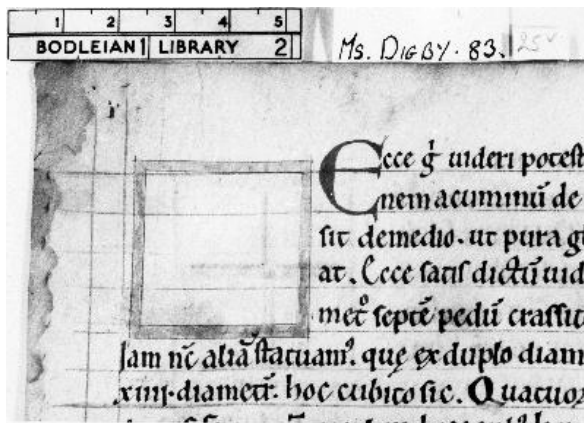 1 2 3 4 5
BODLEIAN 1 LIBRARY 2
Ms. DIGBY. 83. 25v
Ecce g̊ uideri potest
nem acuminū de
sit demedio. ut pura g
at. Ecce satis dictū uid
met᷒ septē pedū crassit
Jam nc̄ aliā statuam᷒. quę ex duplo diam
xiiij. diametr̄. hoc cubico sic. Quatuor